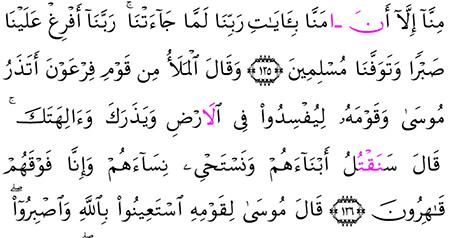 مِنَّآ إِلَّآ أَنَ ـامَنَّا بِـَٔايَـٰتِ رَبِّنَا لَمَّا جَآءَتْنَا ۚ رَبَّنَآ أَفْرِغْ عَلَيْنَا
صَبْرًا وَتَوَفَّنَا مُسْلِمِينَ ﴿١٢٥﴾ وَقَالَ ٱلْمَلَأُ مِن قَوْمِ فِرْعَوْنَ أَتَذَرُ
مُوسَىٰ وَقَوْمَهُۥ لِيُفْسِدُوا۟ فِى ٱلَارْضِ وَيَذَرَكَ وَءَالِهَتَكَ ۚ
قَالَ سَنَقْتُلُ أَبْنَآءَهُمْ وَنَسْتَحْىِۦ نِسَآءَهُمْ وَإِنَّا فَوْقَهُمْ
قَـٰهِرُونَ ﴿١٢٦﴾ قَالَ مُوسَىٰ لِقَوْمِهِ ٱسْتَعِينُوا۟ بِٱللَّهِ وَٱصْبِرُوٓا۟ ۖ